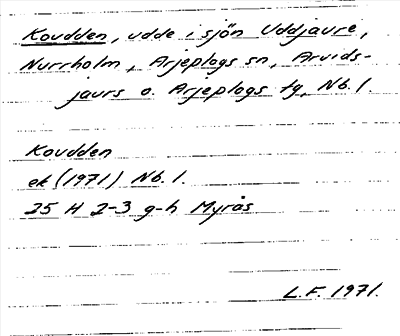 Koudden, udde i sjön Uddjaure,
Nurrholm, Arjeplogs sn, Arvids-
jaurs o. Arjeplogs tg, Nb. l.
Koudden
ek (1971) Nb. l.
25 H 2-3 g-h Myrås
L.F. 1971.